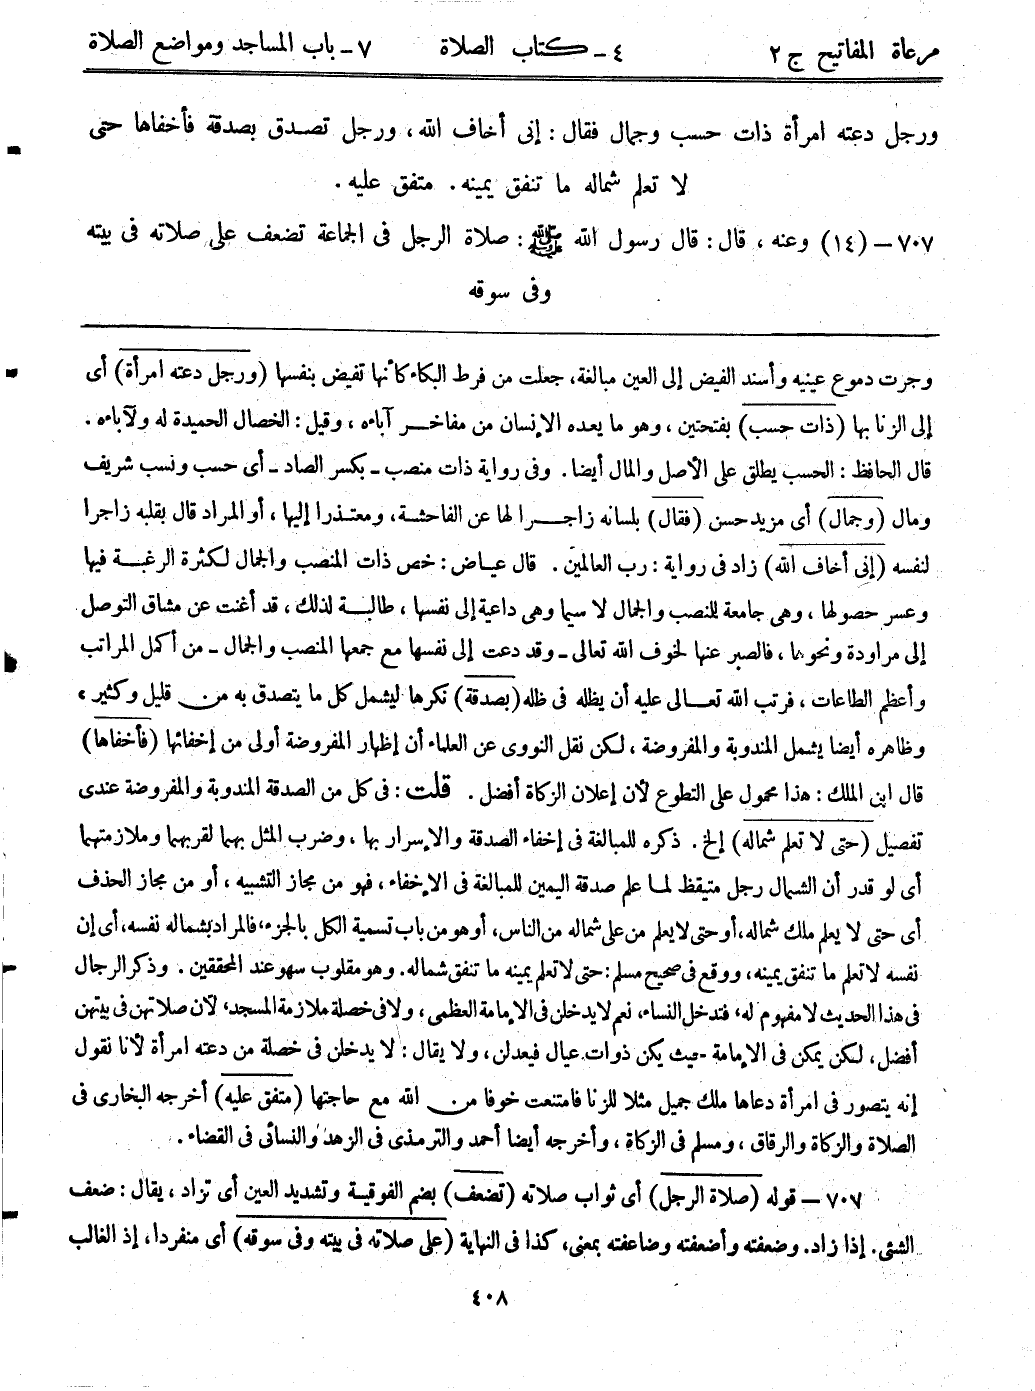 مرعاة المفاتيح ج ٢ ٤ ـ كتاب الصلاة ٧ ـ باب المساجد ومواضع الصلاة
ورجل دعته امرأة ذات حسب وجمال فقال : إنى أخاف الله ، ورجل تصدق بصدقة فأخفاها حتى
لا تعلم شماله ما تنفق يمينه . متفق عليه .
٧٠٧ – (١٤) وعنه ، قال : قال رسول الله ﷺ : صلاة الرجل فى الجماعة تضعف على صلاته فى بيته
وفى سوقه
وجرت دموع عينيه وأسند الفيض إلى العين مبالغة، جعلت من فرط البكاء كأنها تفيض بنفسها (ورجل دعته امرأة) أى
إلى الزنا بها (ذات حسب) بفتحتين ، وهو ما يعده الإنسان من مفاخر آباءه ، وقيل : الخصال الحميدة له ولآباءه .
قال الحافظ : الحسب يطلق على الأصل والمال أيضا . وفى رواية ذات منصب ـ بكسر الصاد ـ أى حسب ونسب شريف
ومال (وجمال) أى مزيد حسن (فقال) بلسانه زاجرا لها عن الفاحشة، ومعتذرا إليها ، أو المراد قال بقلبه زاجرا
لنفسه (إنى أخاف الله) زاد فى رواية : رب العالمين . قال عياض : خص ذات المنصب والجمال لكثرة الرغبة فيها
وعسر حصولها ، وهى جامعة للنصب والجمال لا سيما وهى داعية إلى نفسها ، طالبة لذلك ، قد أغنت عن مشاق التوصل
إلى مراودة ونحوها ، فالصبر عنها لخوف الله تعالى ـ وقد دعت إلى نفسها مع جمعها المنصب والجمال ـ من أكمل المراتب
وأعظم الطاعات ، فرتب الله تعالى عليه أن يظله فى ظله (بصدقة) نكرها ليشمل كل ما يتصدق به من قليل وكثير ،
وظاهره أيضا يشمل المندوبة والمفروضة ، لكن نقل النووى عن العلماء أن إظهار المفروضة أولى من إخفائها (فأخفاها)
قال ابن الملك : هذا محمول على التطوع لأن إعلان الزكاة أفضل . قلت : فى كل من الصدقة المندوبة والمفروضة عندى
تفصيل (حتى لا تعلم شماله) إلخ . ذكره للمبالغة فى إخفاء الصدقة والإسرار بها ، وضرب المثل بهما لقربهما وملازمتهما
أى لو قدر أن الشمال رجل متيقظ لما علم صدقة اليمين للمبالغة فى الإخفاء ، فهو من مجاز التشبيه ، أو من مجاز الحذف
أى حتى لا يعلم ملك شماله، أو حتى لا يعلم من على شماله من الناس، أو هو من باب تسمية الكل بالجزء، فالمراد بشماله نفسه، أى إن
نفسه لا تعلم ما تنفق يمينه، ووقع فى صحيح مسلم : حتى لا تعلم يمينه ما تنفق شماله. وهو مقلوب سهو عند المحققين . وذكر الرجال
فى هذا الحديث لا مفهوم له، فتدخل النساء، نعم لا يدخلن فى الإمامة العظمى، ولا فى خصلة ملازمة المسجد، لأن صلاتهن فى بيتهن
أفضل، لكن يمكن فى الإمامة حيث يكن ذوات عيال فيعدلن، ولا يقال : لا يدخلن فى خصلة من دعته امرأة لأنا نقول
إنه يتصور فى امرأة دعاها ملك جميل مثلا للزنا فامتنعت خوفا من الله مع حاجتها (متفق عليه) أخرجه البخارى فى
الصلاة والزكاة والرقاق ، ومسلم فى الزكاة ، وأخرجه أيضا أحمد والترمذى فى الزهد والنسائى فى القضاء .
٧٠٧ – قوله (صلاة الرجل) أى ثواب صلاته (تضعف) بضم الفوقية وتشديد العين أى تزاد ، يقال : ضعف
الشئ. إذا زاد. وضعفته وأضعفته وضاعفته بمعنى، كذا فى النهاية (على صلاته فى بيته وفى سوقه) أى منفردا، إذ الغالب
٤٠٨